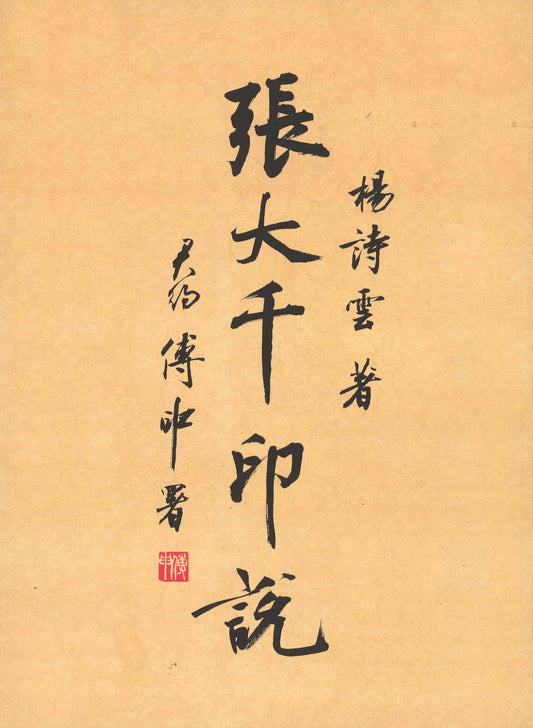 楊詩雲著
張大千印說
君約傅申署
傅申